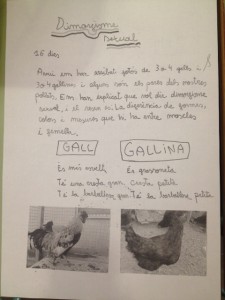 Dimorfisme
sexual
5è dies
Avui em han arribat fotos de 3 o 4 galls i
3 o 4 gallines i alguns són els pares dels nostres
pollets. Em han explicat que vol dir dimorfisme
sexual, i el nexe és: La diferència de formes,
colors i mesures que hi ha entre mascles
i femelles.
GALL GALLINA
És més vermell És grossoneta
Té una cresta gran Cresta petita
Té la barballera gran Té la barballera petita